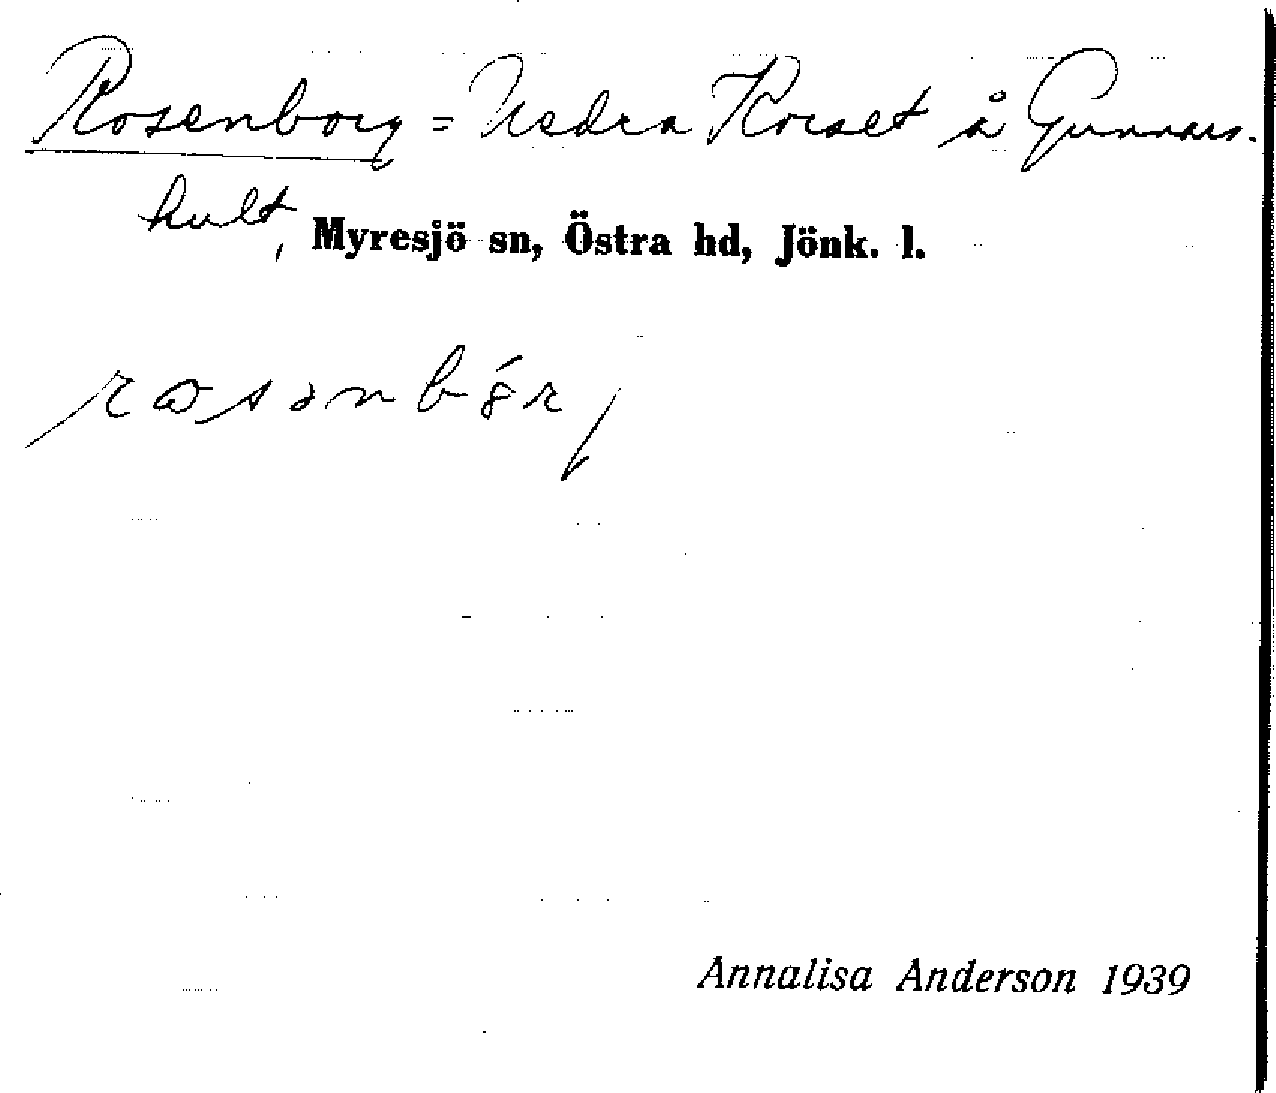 Rosenborg = Nedra Korset å Gunnars-
hult, Myresjö sn, Östra hd, Jönk. l.
Annalisa Anderson 1939